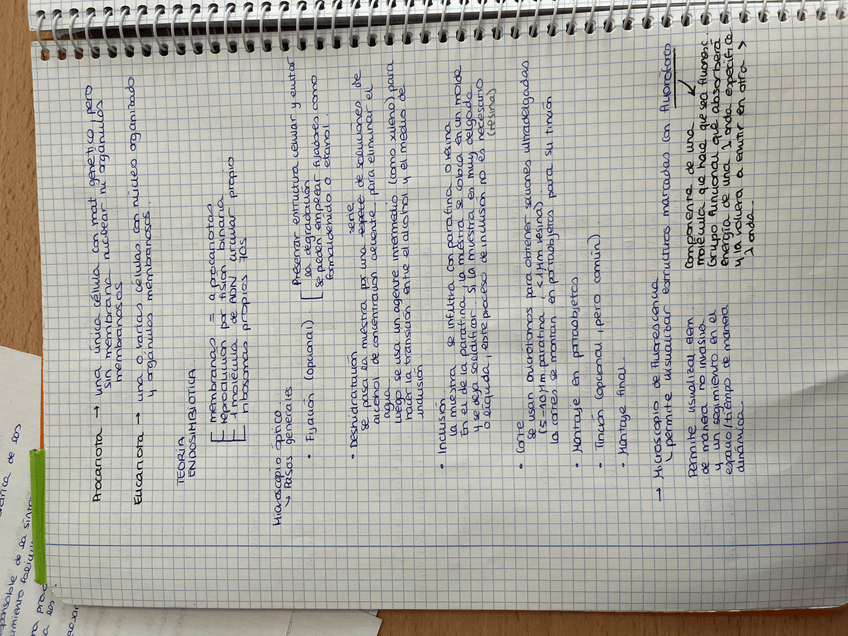 Procariota → una única célula con mat genético, pero
sin membrana nuclear ni orgánulos
membranosos
Eucariota → una o varias células con núcleo organizado
y orgánulos membranosos.
TEORÍA
ENDOSIMBIÓTICA
membranas = a procariotas
reproducción por fisión binaria
1 molécula de ADN circular propio
ribosomas propios 70s
Microscopio óptico
↳ Pasos generales
• Fijación (opcional)
Preservar estructura celular y evitar
la degradación
se pueden emplear fijadores como
formaldehído o etanol.
• Deshidratación
serie
se pasa la muestra por una de soluciones de
alcohol de concentración creciente para eliminar el
agua
Luego se usa un agente intermedio (como xileno) para
hacer la transición entre el alcohol y el medio de
inclusión.
• Inclusión
la muestra se infiltra con parafina o resina
En el de la parafina, la muestra se coloca en un molde
y se deja solidificar. Si la muestra es muy delgada
o líquida, este proceso de inclusión no es necesario
(resina)
• Corte
se usan micrótomos para obtener secciones ultradelgadas
(5-10 μm parafina, <1μm resina)
la cortes se montan en portaobjetos para su tinción
• Montaje en portaobjetos
• Tinción (opcional, pero común)
• Montaje final.
→ Microscopio de fluorescencia
↳ permite visualizar estructuras marcadas con fluoróforos
Permite visualizar elem.
de manera no invasiva
y un seguimiento en el
espacio y tiempo de manera
dinámica.
componente de una
molécula que hace que sea fluoresc.
Grupo funcional que absorberá
energía de una λ onda específica
y la volverá a emitir en otra >
λ onda.
responsable de la